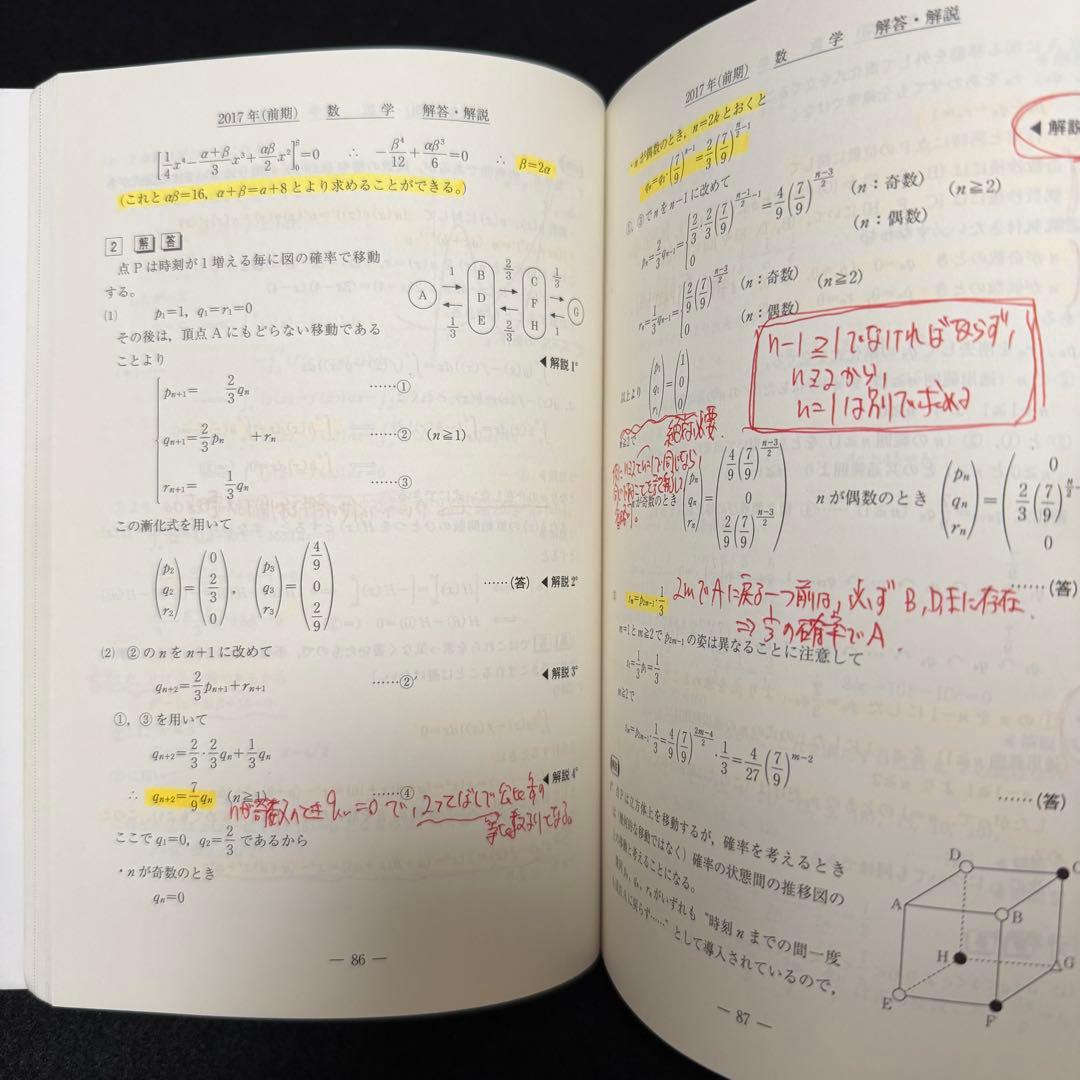 2017年(前期) 数 学 解答・解説
[1/4 x⁴ − (α+β)/3 x³ + αβ/2 x²]₀^β = 0 ∴ −β⁴/12 + αβ³/6 = 0 ∴ β=2α
(これと αβ=16, α+β=a+8 とより求めることができる。)
2 解 答
点Pは時刻が1増える毎に図の確率で移動
する。
A 1 1/3 B D E 2/3 2/3 C F H 1/3 1 G
(1) p₁=1, q₁=r₁=0
その後は,頂点Aにもどらない移動である
ことより
◀解説1°
pₙ₊₁= 2/3 qₙ ……①
qₙ₊₁= 2/3 pₙ +rₙ ……② (n≧1)
rₙ₊₁= 1/3 qₙ ……③
この漸化式を用いて
(p₂ q₂ r₂) = (0 2/3 0), (p₃ q₃ r₃) = (4/9 0 2/9) ……(答) ◀解説2°
(2) ②のnをn+1に改めて
qₙ₊₂= 2/3 pₙ₊₁+rₙ₊₁ ……②′ ◀解説3°
①, ③を用いて
qₙ₊₂= 2/3・2/3 qₙ+ 1/3 qₙ
◀解説4°
∴ qₙ₊₂= 7/9 qₙ (n≧1) ……④
ここで q₁=0, q₂= 2/3 であるから
・nが奇数のとき
qₙ=0
― 86 ―
2017年(前期) 数 学 解答・解説
・nが偶数のとき, n=2k とおくと
◀解説
qₙ=q₂・(7/9)^(k−1) = 2/3 (7/9)^(n/2−1)
①, ③でnをn−1に改めて
pₙ= 2/3 qₙ₋₁= { 2/3・2/3 (7/9)^((n−1)/2−1) = 4/9 (7/9)^((n−3)/2) (n:奇数) (n≧2)
0 (n:偶数)
rₙ= 1/3 qₙ₋₁= { 2/9 (7/9)^((n−3)/2) (n:奇数) (n≧2)
0 (n:偶数)
n−1≧1でなければならず,
n≧2から,
n=1は別で求める
以上より (p₁ q₁ r₁) = (1 0 0)
n≧2で
絶対必要.
nが奇数のとき (pₙ qₙ rₙ) = (4/9 (7/9)^((n−3)/2) 0 2/9 (7/9)^((n−3)/2)) nが偶数のとき (pₙ qₙ rₙ) = (0 2/3 (7/9)^(n/2− 0)
……(答)
sₘ=p₂ₘ₋₁・1/3 2mでAに戻る一つ前は, 必ず B, D, Eに存在
⇒ 1/3の確率でA.
m=1とm≧2でp₂ₘ₋₁の姿は異なることに注意して
s₁= 1/3 p₁= 1/3
m≧2で
sₘ=p₂ₘ₋₁・1/3 = 4/9 (7/9)^((2m−4)/2)・1/3 = 4/27 (7/9)^(m−2)
……(答)
点Pは立方体上を移動するが, 確率を考えるとき
は(幾何的な移動ではなく)確率の状態間の推移図の
上の移動と考えることになる。
pₙ, qₙ, rₙがいずれも“時刻nまでの間一度
も頂点Aに戻らず……”として導入されているので,
D C A B H G E F
― 87 ―